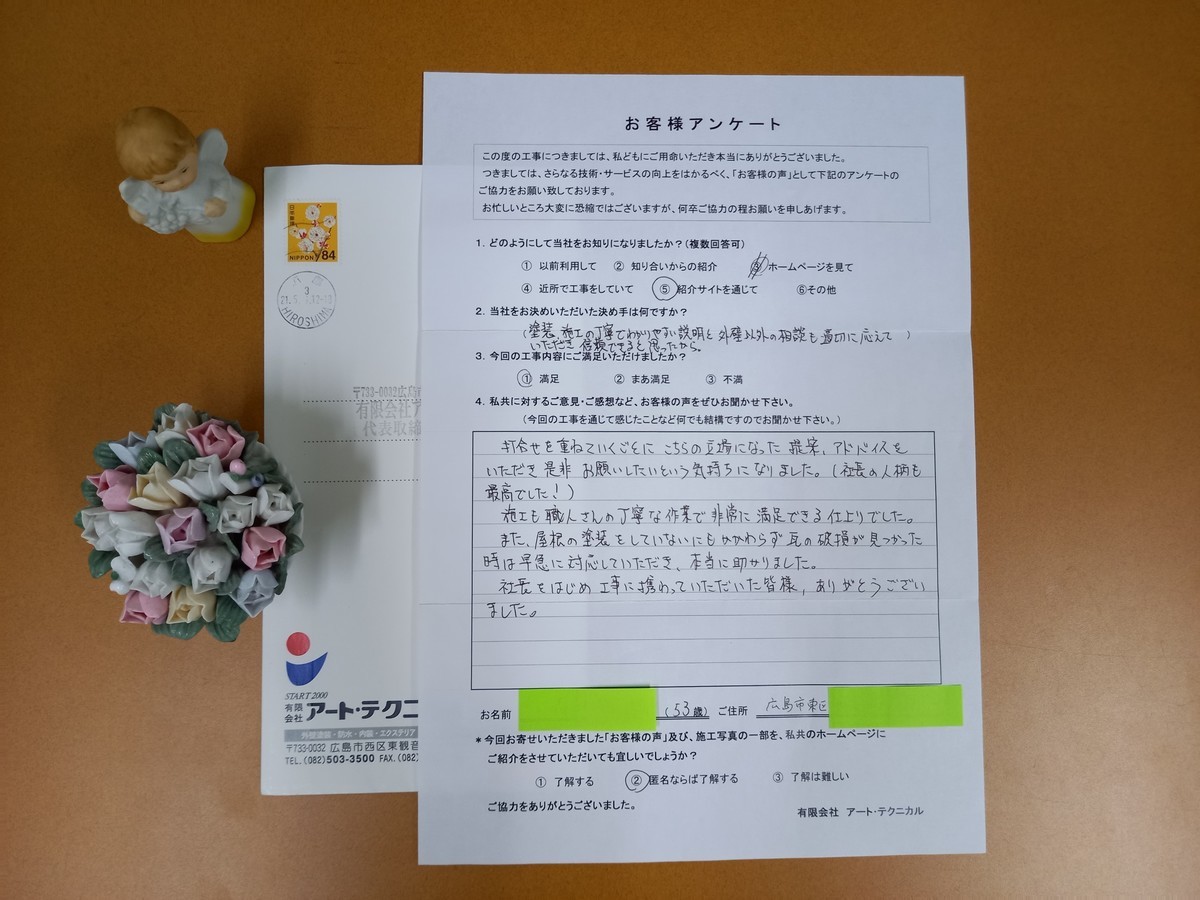 お客様アンケート
この度の工事につきましては、私どもにご用命いただき本当にありがとうございました。
つきましては、さらなる技術・サービスの向上をはかるべく、「お客様の声」として下記のアンケートの
ご協力をお願い致しております。
お忙しいところ大変に恐縮ではございますが、何卒ご協力の程お願いを申しあげます。
1. どのようにして当社をお知りになりましたか？(複数回答可)
① 以前利用して ② 知り合いからの紹介 ③ ホームページを見て
④ 近所で工事をしていて ⑤ 紹介サイトを通じて ⑥その他
2. 当社をお決めいただいた決め手は何ですか？
(塗装、施工の丁寧でわかりやすい説明と外壁以外の相談も適切に応えて )
いただき信頼できると思ったから。
3. 今回の工事内容にご満足いただけましたか？
① 満足 ② まあ満足 ③ 不満
4. 私共に対するご意見・ご感想など、お客様の声をぜひお聞かせ下さい。
(今回の工事を通じて感じたことなど何でも結構ですのでお聞かせ下さい。)
打合せを重ねていくごとにこちらの立場になった提案、アドバイスを
いただき是非お願いしたいという気持ちになりました。(社長の人柄も
最高でした！)
施工も職人さんの丁寧な作業で非常に満足できる仕上りでした。
また、屋根の塗装をしていないにもかかわらず瓦の破損が見つかった
時は早急に対応していただき、本当に助かりました。
社長をはじめ工事に携わっていただいた皆様、ありがとうござい
ました。
お名前 (53歳) ご住所 広島市東区
＊今回お寄せいただきました「お客様の声」及び、施工写真の一部を、私共のホームページに
ご紹介をさせていただいても宜しいでしょうか？
① 了解する ② 匿名ならば了解する ③ 了解は難しい
ご協力をありがとうございました。
有限会社 アート・テクニカル
日本郵便
NIPPON 84
3
HIROSHIMA
〒733-0032広島市
有限会社ア
代表取締
START 2000
有限会社 アート・テクニ
外壁塗装・防水・内装・エクステリア
〒733-0032 広島市西区東観音
TEL.(082)503-3500 FAX.(082)